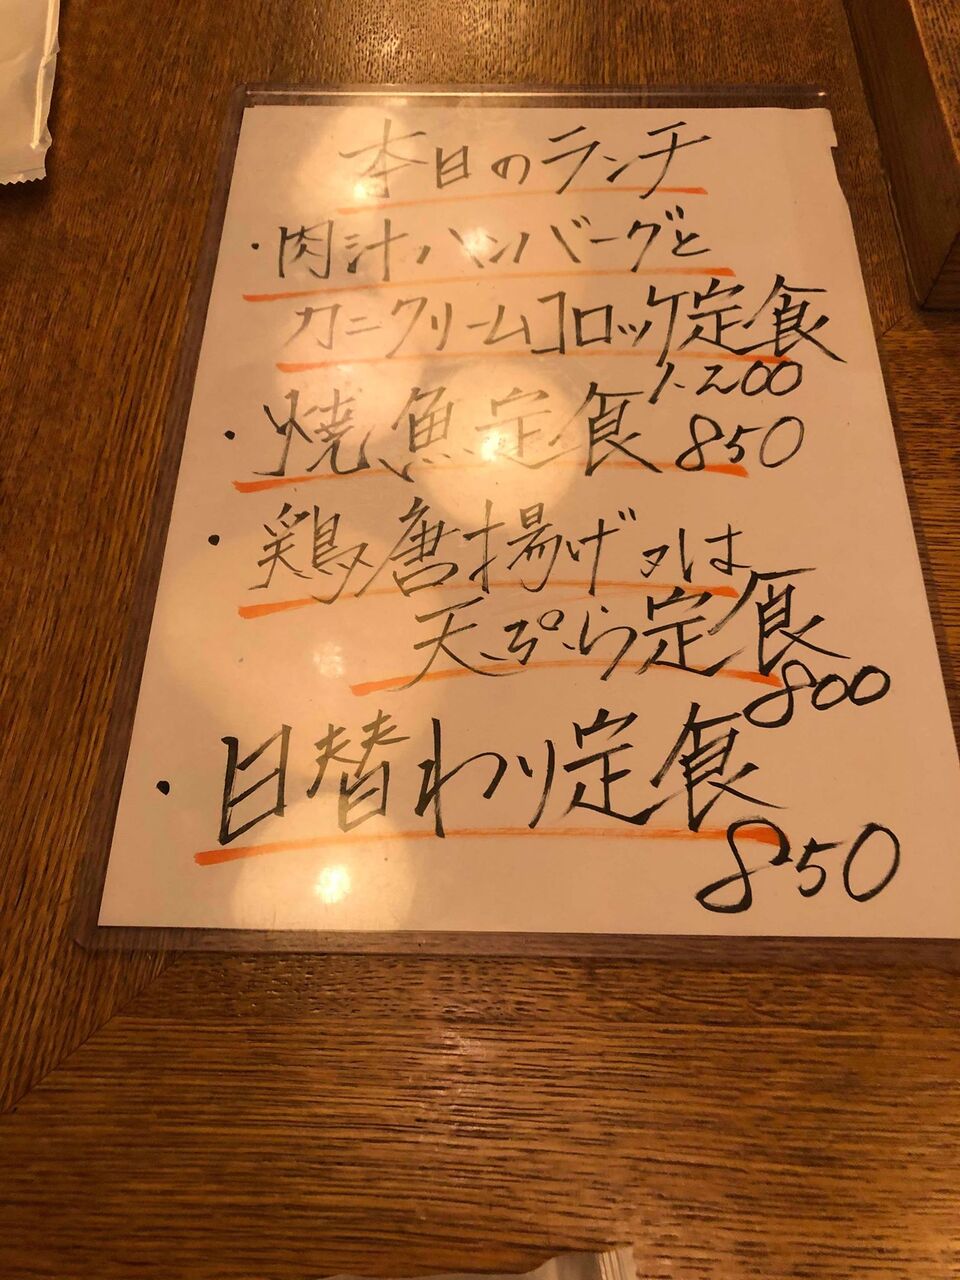 本日のランチ
・肉汁ハンバーグと
カニクリームコロッケ定食
1.200
・焼魚定食 850
・鶏唐揚げ又は
天ぷら定食
800
・日替わり定食
850